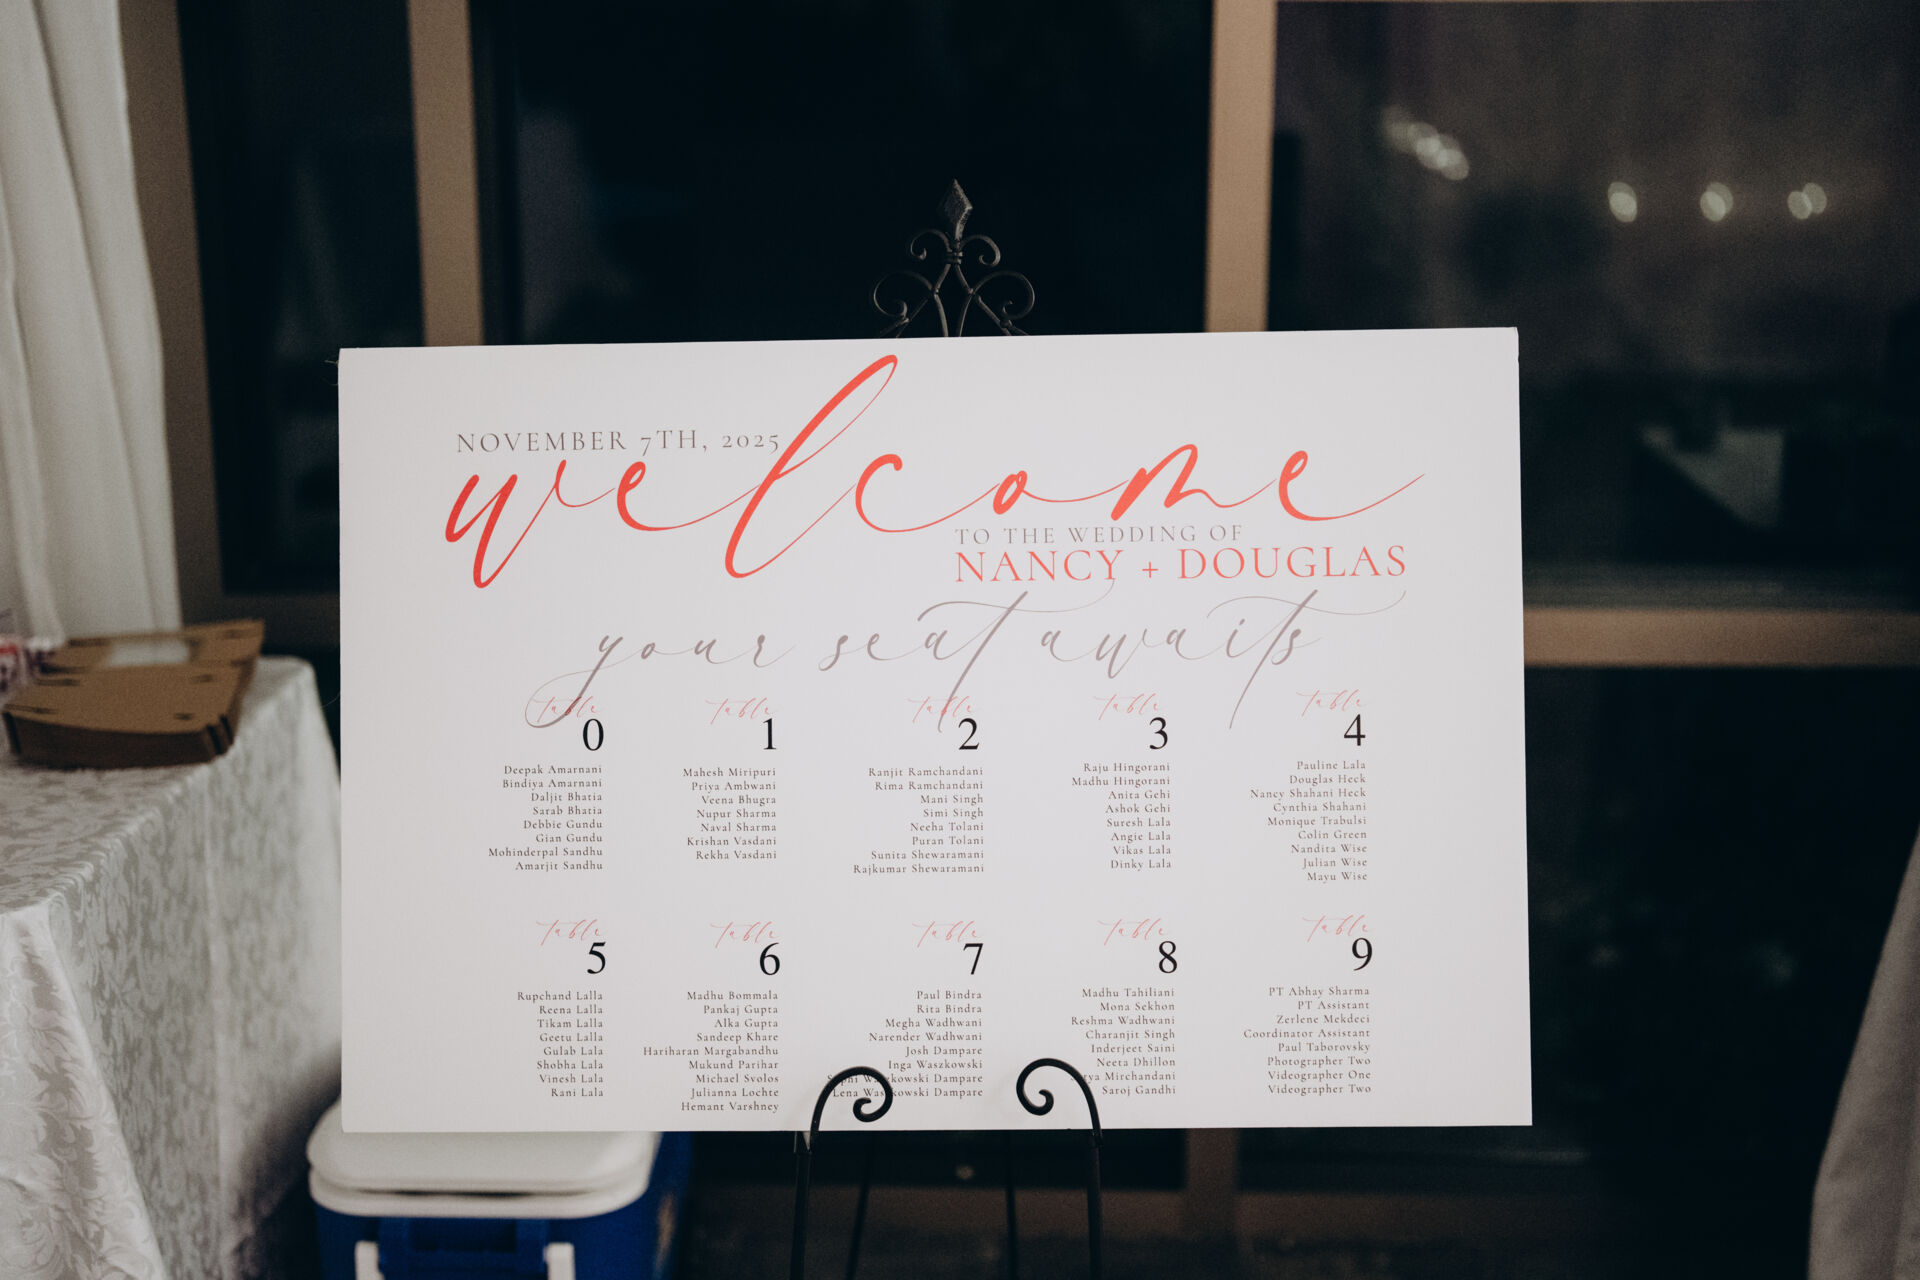 NOVEMBER 7TH, 2025
welcome
TO THE WEDDING OF
NANCY + DOUGLAS
your seat awaits
table
0
Deepak Amarnani
Bindiya Amarnani
Daljit Bhatia
Sarab Bhatia
Debbie Gundu
Gian Gundu
Mohinderpal Sandhu
Amarjit Sandhu
table
1
Mahesh Miripuri
Priya Ambwani
Veena Bhugra
Nupur Sharma
Naval Sharma
Krishan Vasdani
Rekha Vasdani
table
2
Ranjit Ramchandani
Rima Ramchandani
Mani Singh
Simi Singh
Neeha Tolani
Puran Tolani
Sunita Shewaramani
Rajkumar Shewaramani
table
3
Raju Hingorani
Madhu Hingorani
Anita Gehi
Ashok Gehi
Suresh Lala
Angie Lala
Vikas Lala
Dinky Lala
table
4
Pauline Lala
Douglas Heck
Nancy Shahani Heck
Cynthia Shahani
Monique Trabulsi
Colin Green
Nandita Wise
Julian Wise
Mayu Wise
table
5
Rupchand Lalla
Reena Lalla
Tikam Lalla
Geetu Lalla
Gulab Lala
Shobha Lala
Vinesh Lala
Rani Lala
table
6
Madhu Bommala
Pankaj Gupta
Alka Gupta
Sandeep Khare
Hariharan Margabandhu
Mukund Parihar
Michael Svolos
Julianna Lochte
Hemant Varshney
table
7
Paul Bindra
Rita Bindra
Megha Wadhwani
Narender Wadhwani
Josh Dampare
Inga Waszkowski
Waszkowski Dampare
Lena Waszkowski Dampare
table
8
Madhu Tahiliani
Mona Sekhon
Reshma Wadhwani
Charanjit Singh
Inderjeet Saini
Neeta Dhillon
Mirchandani
Saroj Gandhi
table
9
PT Abhay Sharma
PT Assistant
Zerlene Mekdeci
Coordinator Assistant
Paul Taborovsky
Photographer Two
Videographer One
Videographer Two